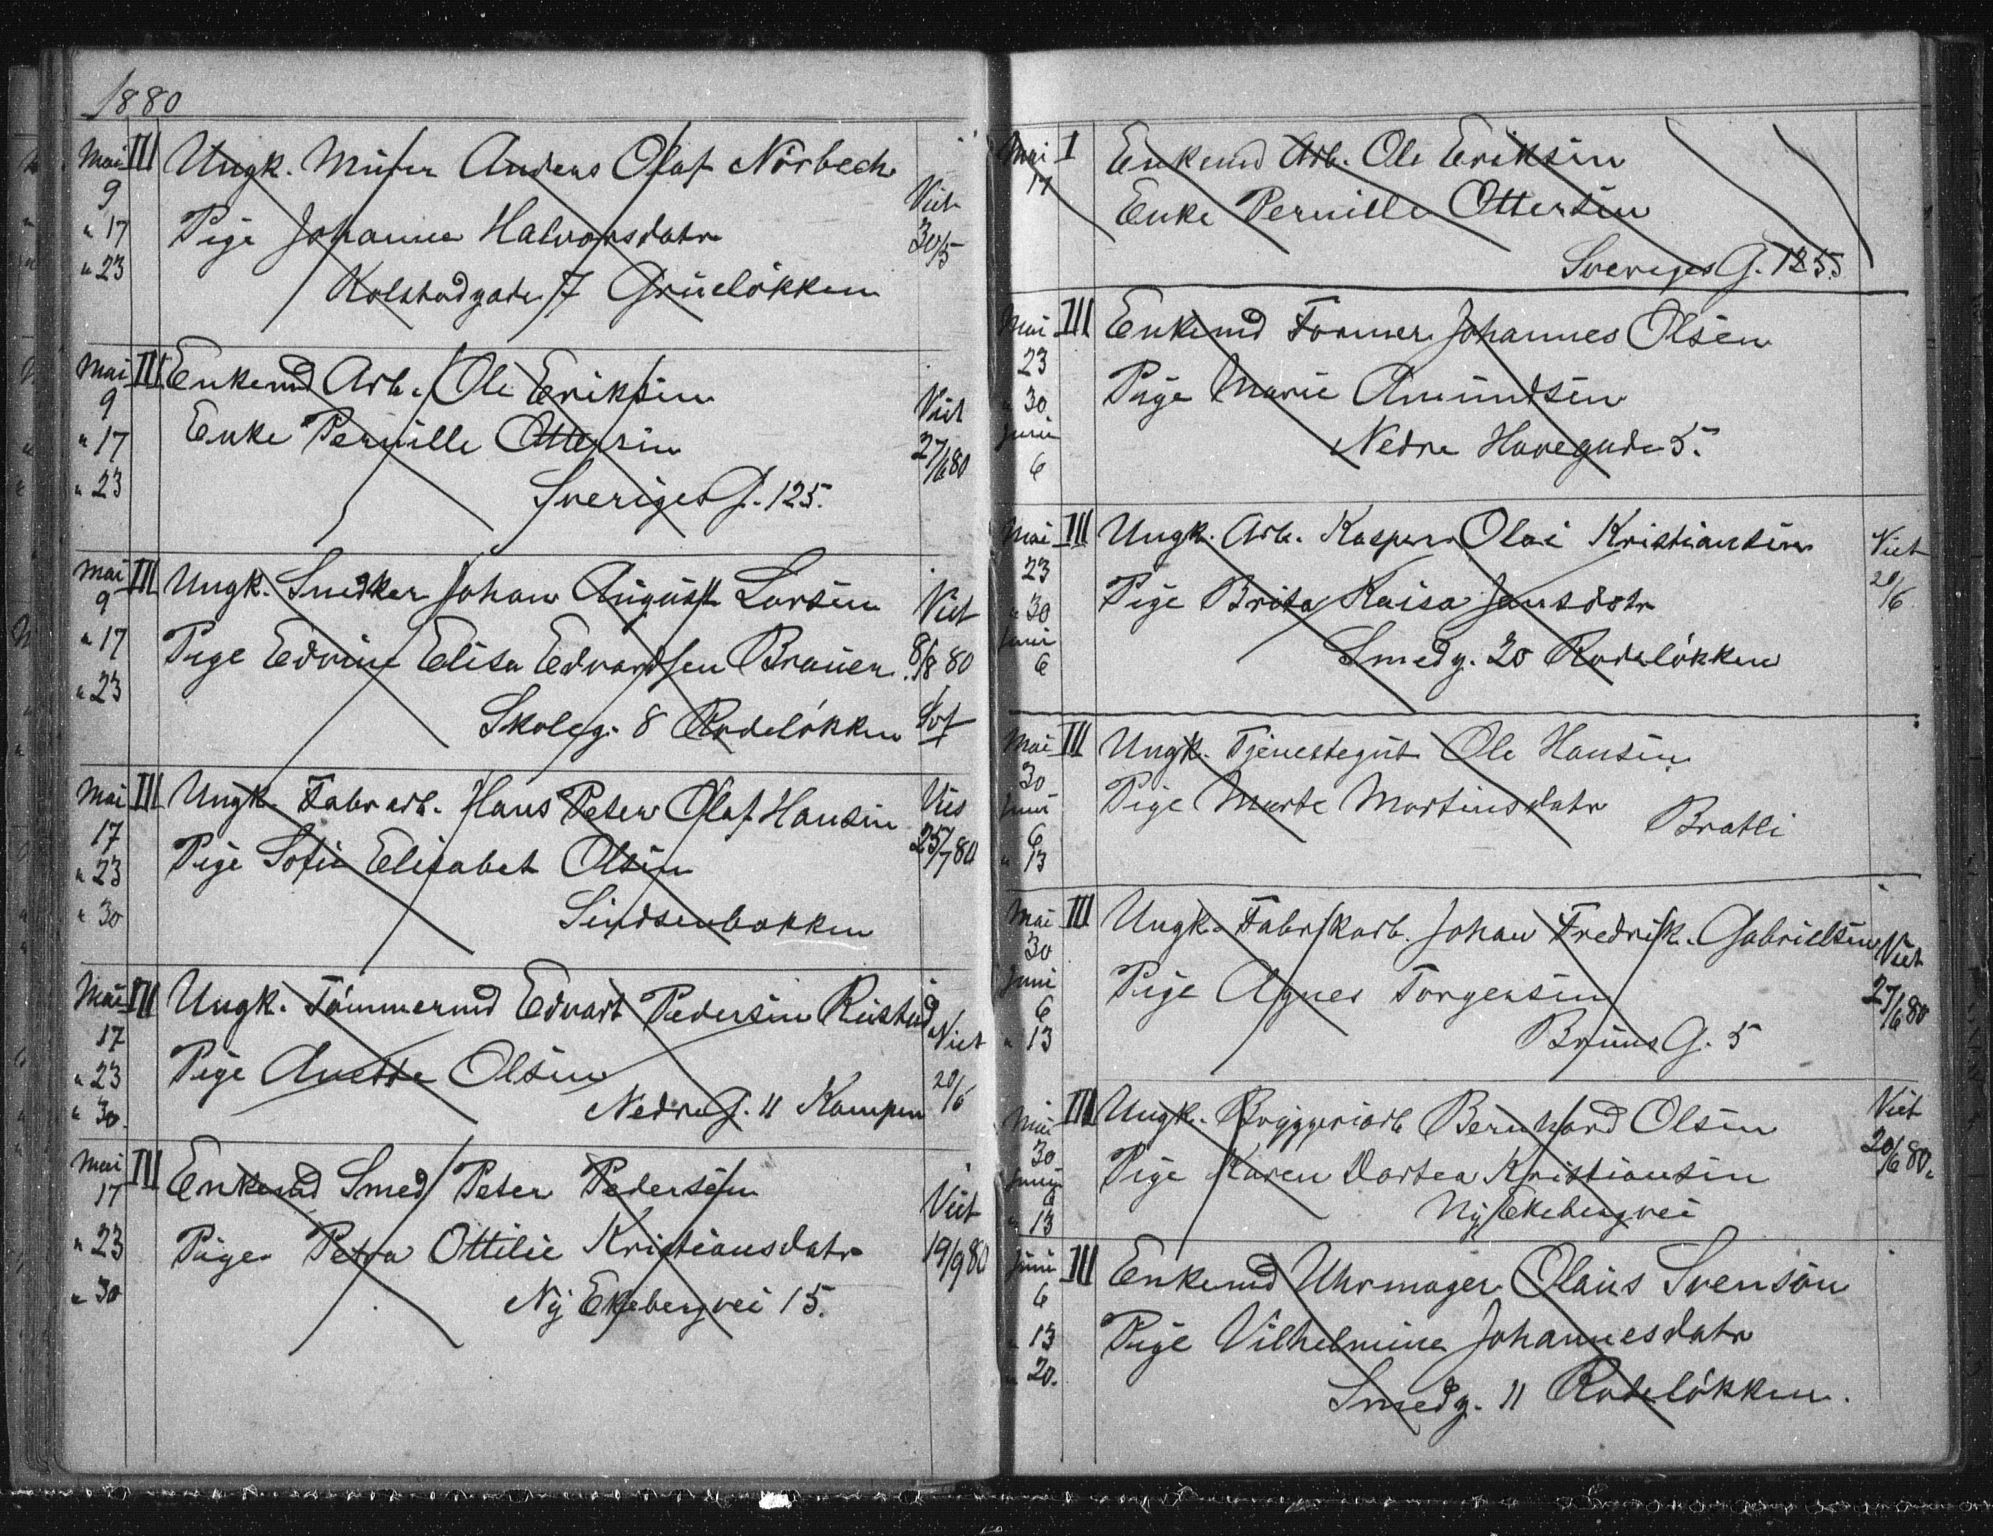 1880
Mai III Ungk. Murer Anders Olaf Nørbech
9
" 17 Pige Johanne Halvorsdatr Viet
" 23 Kolstadgade 7 Grüneløkken 30/5
Mai III Enkemd Arb. Ole Eriksen
9
" 17 Enke Pernille Ottersen Viet
" 23 Sveriges G. 125. 27/6 80
Mai III Ungk. Snedker Johan August Larsen Viet
9
" 17 Pige Edvine Elisa Edvardsen Brauer. 8/8 80
" 23 Skoleg. 8 Rodeløkken
Mai III Ungk. Fabrarb. Hans Peter Olaf Hansen Vies
17
" 23 Pige Sofie Elisabet Olsen 25/7 80
" 30 Sindsenbakken
Mai III Ungk. Tømmermd Edvart Pedersen Rustad
17 Viet
" 23 Pige Anette Olsen 20/6
" 30. Nedre G. 11 Kampen
Mai III Enkemd Smed Peter Pedersen
17 Viet
" 23 Pige Petra Ottilie Kristiansdatr 19/9 80
" 30 Ny Ekebergvei 15.
Mai I Enkemd Arb. Ole Eriksen
17 Enke Pernille Ottersen
Sveriges G. 125.
Mai III Enkemd Former Johannes Olsen
23
" 30. Pige Marie Amundsen
Juni
6 Nedre Havegade 5.
Mai III Ungk. Arb. Kasper Olai Kristiansen Viet
23 20/6
" 30 Pige Brita Kaisa Jansdotr
Juni
6 Smedg. 20 Rodeløkken
Mai III Ungk. Tjenestegut Ole Hansen
30
Juni Pige Marte Martinsdatr
6 Bratli
" 13
Mai III Ungk. Fabrikarb. Johan Fredrik. Gabrielsen Viet
30
Juni Pige Agnes Torgersen 27/6 80
6
" 13 Bruns G. 5
Mai III Ungk. Bryggeriarb Bernhard Olsen Viet
30 20/6 80.
Juni Pige Karen Dortea Kristiansen
6
" 13 Ny Ekebergvei
Juni III Enkemd Uhrmager Olaus Svensøn
6
" 13 Pige Vilhelmine Johannesdatr
" 20. Smedg. 11 Rodeløkken.